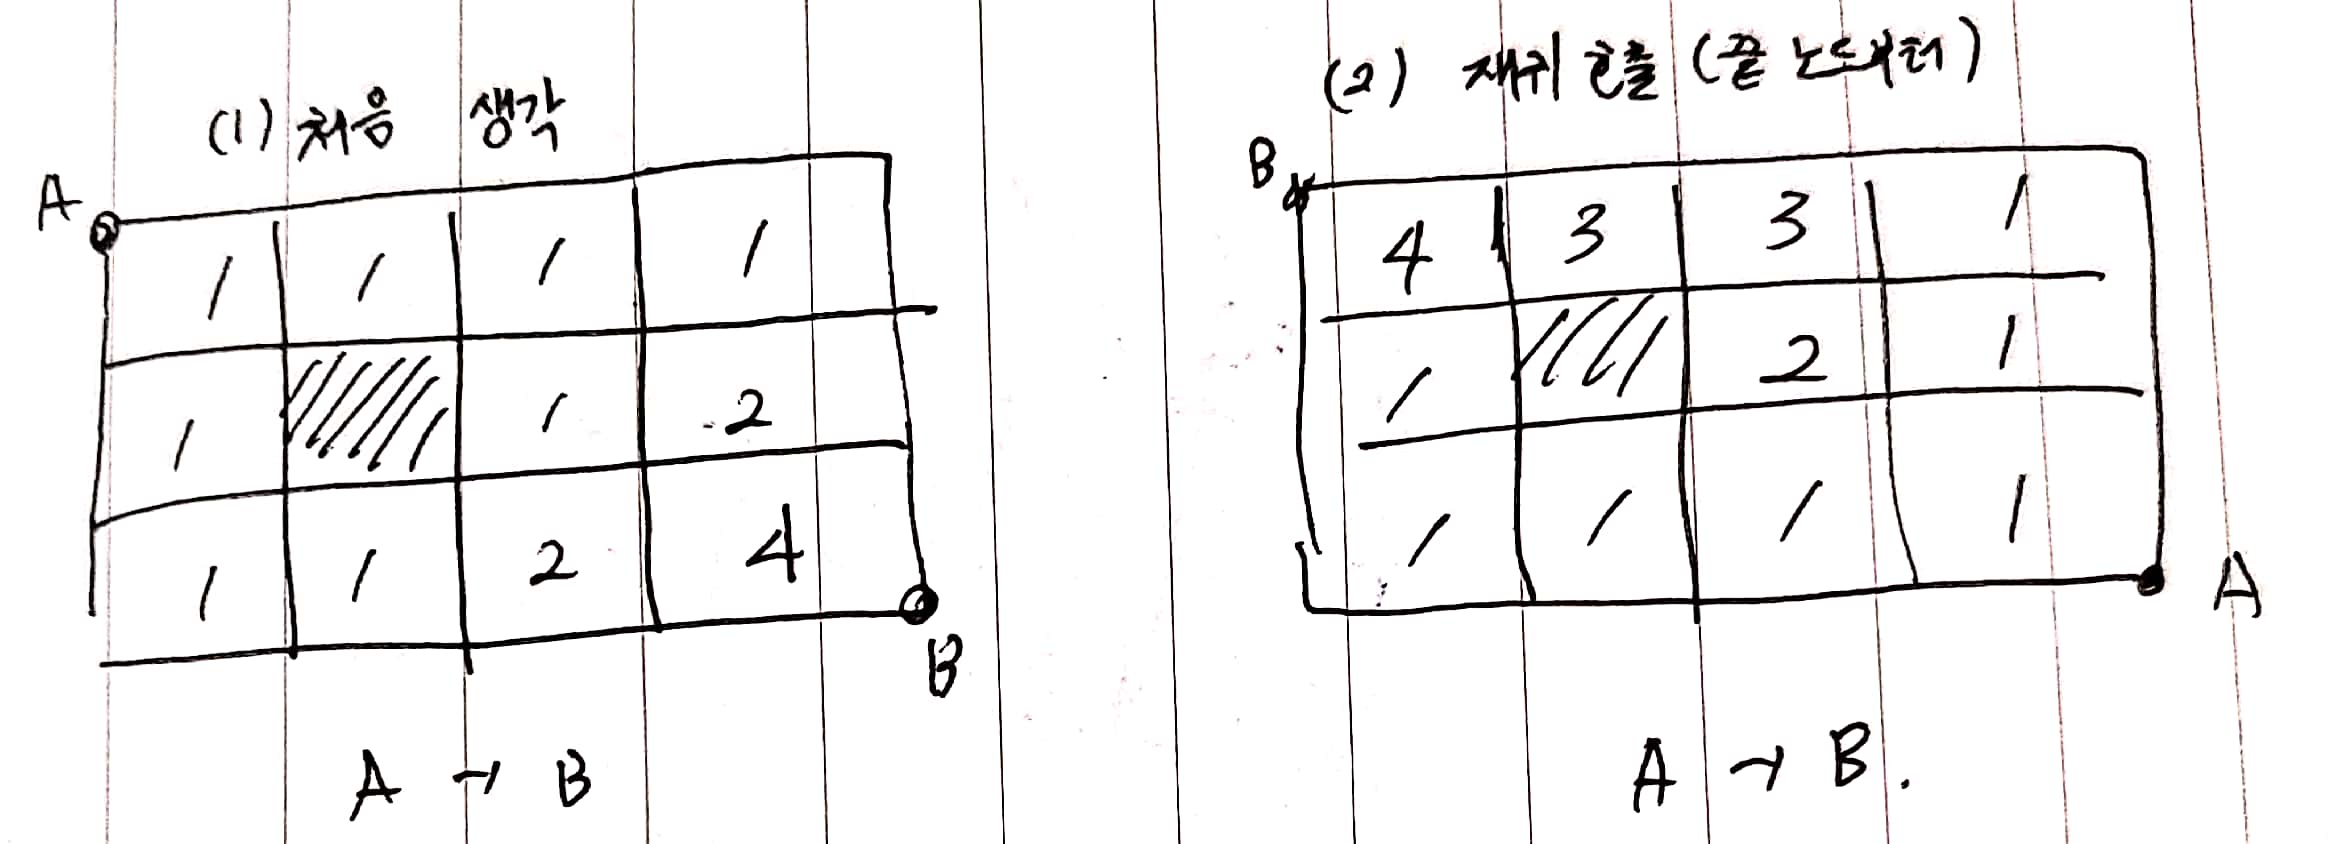 (1) 처음 생각
A
1 1 1 1
1 1 2
1 1 2 4
B
A → B
(2) 재귀 호출 (끝 노드부터)
B
4 3 3 1
1 2 1
1 1 1 1
A
A → B.